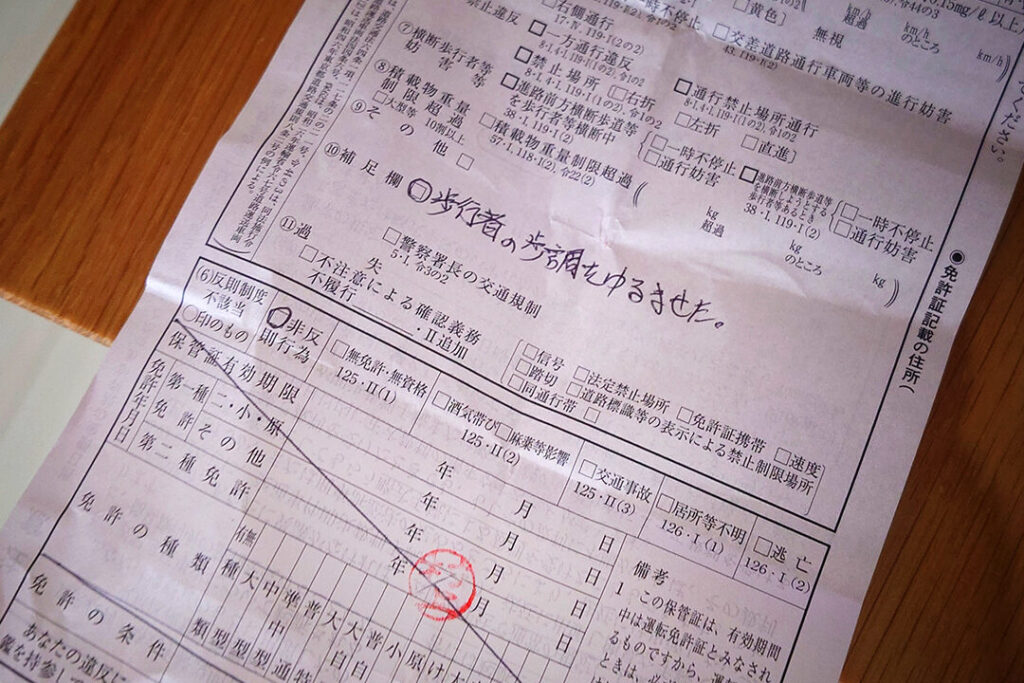 右側通行
17・Ⅳ、119・Ⅰ(2の2)
一時不停止
黄色〕
無視
km/h
超過
km/h
のところ
km/h
0.15mg/ℓ以上
禁止違反
一方通行違反
8・Ⅰ、4・Ⅰ、119・Ⅰ(1の2)、令1の2
交差道路通行車両等の進行妨害
43、119・Ⅰ(2)
⑦横断歩行者等
妨害等
禁止場所〔右折
8・Ⅰ、4・Ⅰ、119・Ⅰ(1の2)、令1の2
左折
直進〕
通行禁止場所通行
8・Ⅰ、4・Ⅰ、119・Ⅰ(1の2)、令1の2
進路前方横断歩道等
を歩行者等横断中
38・Ⅰ、119・Ⅰ(2)
一時不停止
通行妨害
進路前方横断歩道等
を横断しようとする
歩行者等あるとき
38・Ⅰ、119・Ⅰ(2)
一時不停止
通行妨害
⑧積載物重量
制限超過
大型等 10割以上
積載物重量制限超過
57・Ⅰ、118・Ⅰ(2)、令22(2)
kg
超過
kg
のところ
kg
⑨その他
⑩補足欄
歩行者の歩調をゆるませた。
⑪過失
警察署長の交通規制
5・Ⅰ、令3の2
不注意による確認義務
不履行・Ⅱ追加
信号
踏切
同通行帯
法定禁止場所
道路標識等の表示による禁止制限場所
免許証携帯
速度
(6)反則制度
不該当
○印のもの
非反
則行為
無免許・無資格
125・Ⅱ(1)
酒気帯び
麻薬等影響
125・Ⅱ(2)
交通事故
125・Ⅱ(3)
居所等不明
126・Ⅰ(1)
逃亡
126・Ⅰ(2)
保管証有効期限
年 月 日
免許年月日
第一種免許
二・小・原
年 月 日
その他
年 月 日
第二種免許
年 月 日
免許の種類
有無
種類
大型
中型
準中型
普通
大特
大自
普自
小
原
け
大
免許の条件
備考
1 この保管証は、有効期間
中は運転免許証とみなされ
るものですから、運転
ときは、必
あなたの違反に
鑑を持参して
●免許証記載の住所(
ください。